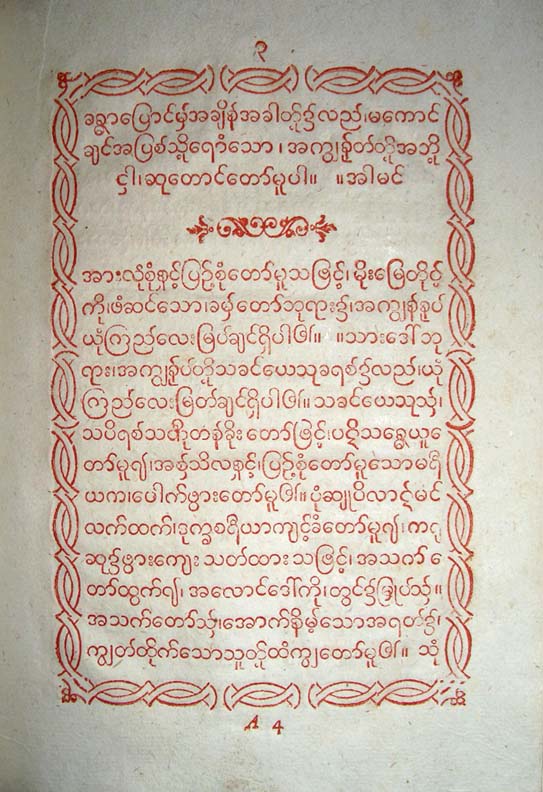 ၃
ခန္ဓာပြောင်မှ်အချိန်အခါတို့၌လည်၊မကောင်
ချင်အပြစ်သို့ရောံသော၊အကျွန်ုတ်တို့အဘို့
ငှါ၊ဆုတောင်တော်မူပါ။ ။အါမင်
အားလုံစုံနှင့်ပြဉ်စုံတော်မူသဖြင့်၊မိုးမြေတိုင့်
ကို၊ဖံဆင်သော၊ခမ်တော်ဘုရား၌၊အကျွန်နုပ်
ယုံကြည်လေးမြပ်ချင်ရှိပါ၏။ ။သားဒေါ်ဘု
ရား၊အကျွန်ုပ်တို့သခင်ယေသုခရစ်၌လည်၊ယုံ
ကြည်လေးမြတ်ချင်ရှိပါ၏။သခင်ယေသုသ်၊
သပိရစ်သင်တုတန်ခိုးတော်ဖြင့်၊ပဋိသန္ဓေယူ
တော်မူ၍၊အစှ်သီလနှင့်၊ပြဉ်စုံတော်မူသောမရီ
ယက၊ပေါက်ဖွားတော်မူ၏။ပုံဆျုပိလာဋ်မင်
လက်ထက်၊ဒုက္ခစရိယာကျင့်ခံတော်မူ၍၊ကရု
ဆု၌ဖွားကျေးသတ်ထားသဖြင့်၊အသက်တေ
တော်ထွက်၍၊အလောင်ဒေါ်ကို၊တွင်၌မြှုပ်သ်။
အသက်တော်သ်၊အောက်နိမ့်သောအရတ်၌၊
ကျွတ်ထိုက်သောသူတို့ထံကျွတော်မူ၏။ သုံ
A 4